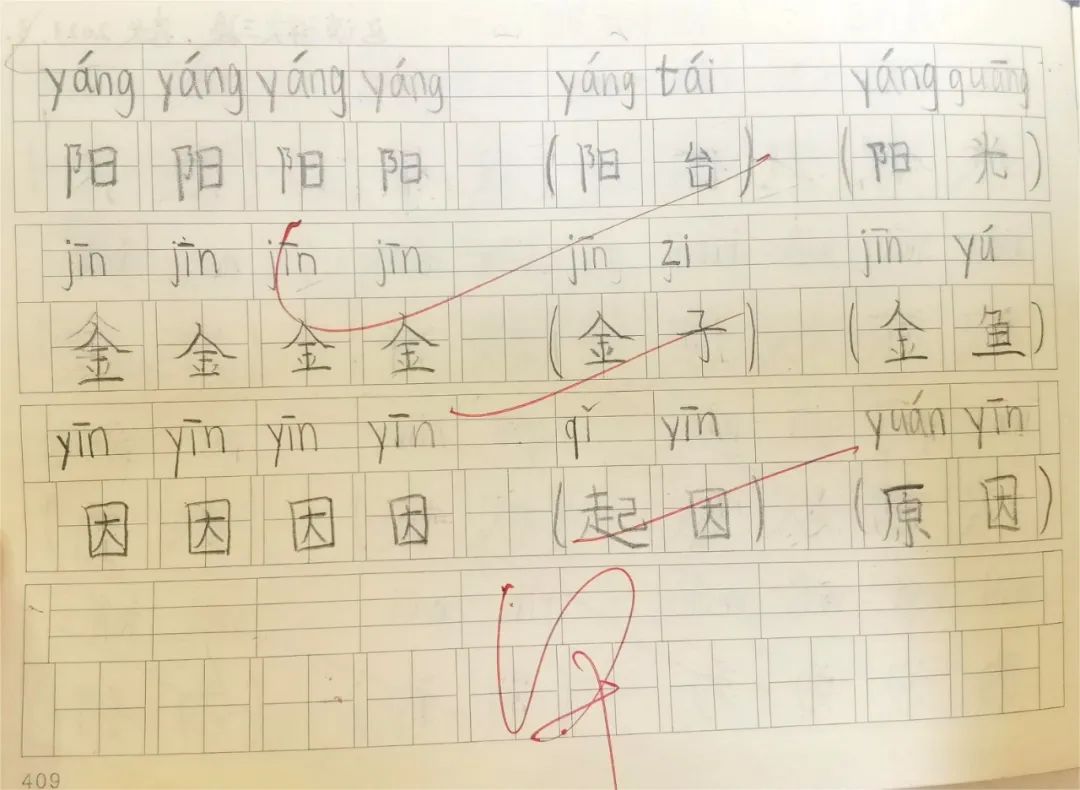 yáng yáng yáng yáng yáng tái yáng guāng
阳 阳 阳 阳 (阳 台) (阳 光)
jīn jīn jīn jīn jīn zi jīn yú
金 金 金 金 (金 子) (金 鱼)
yīn yīn yīn yīn qǐ yīn yuán yīn
因 因 因 因 (起 因) (原 因)
409